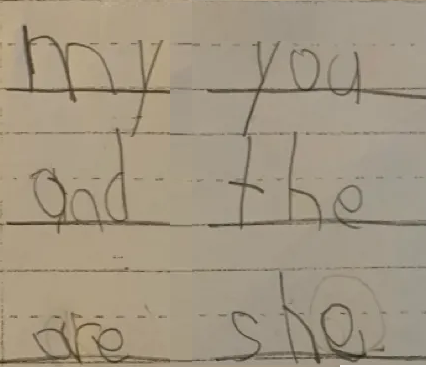 my you
and the
are she